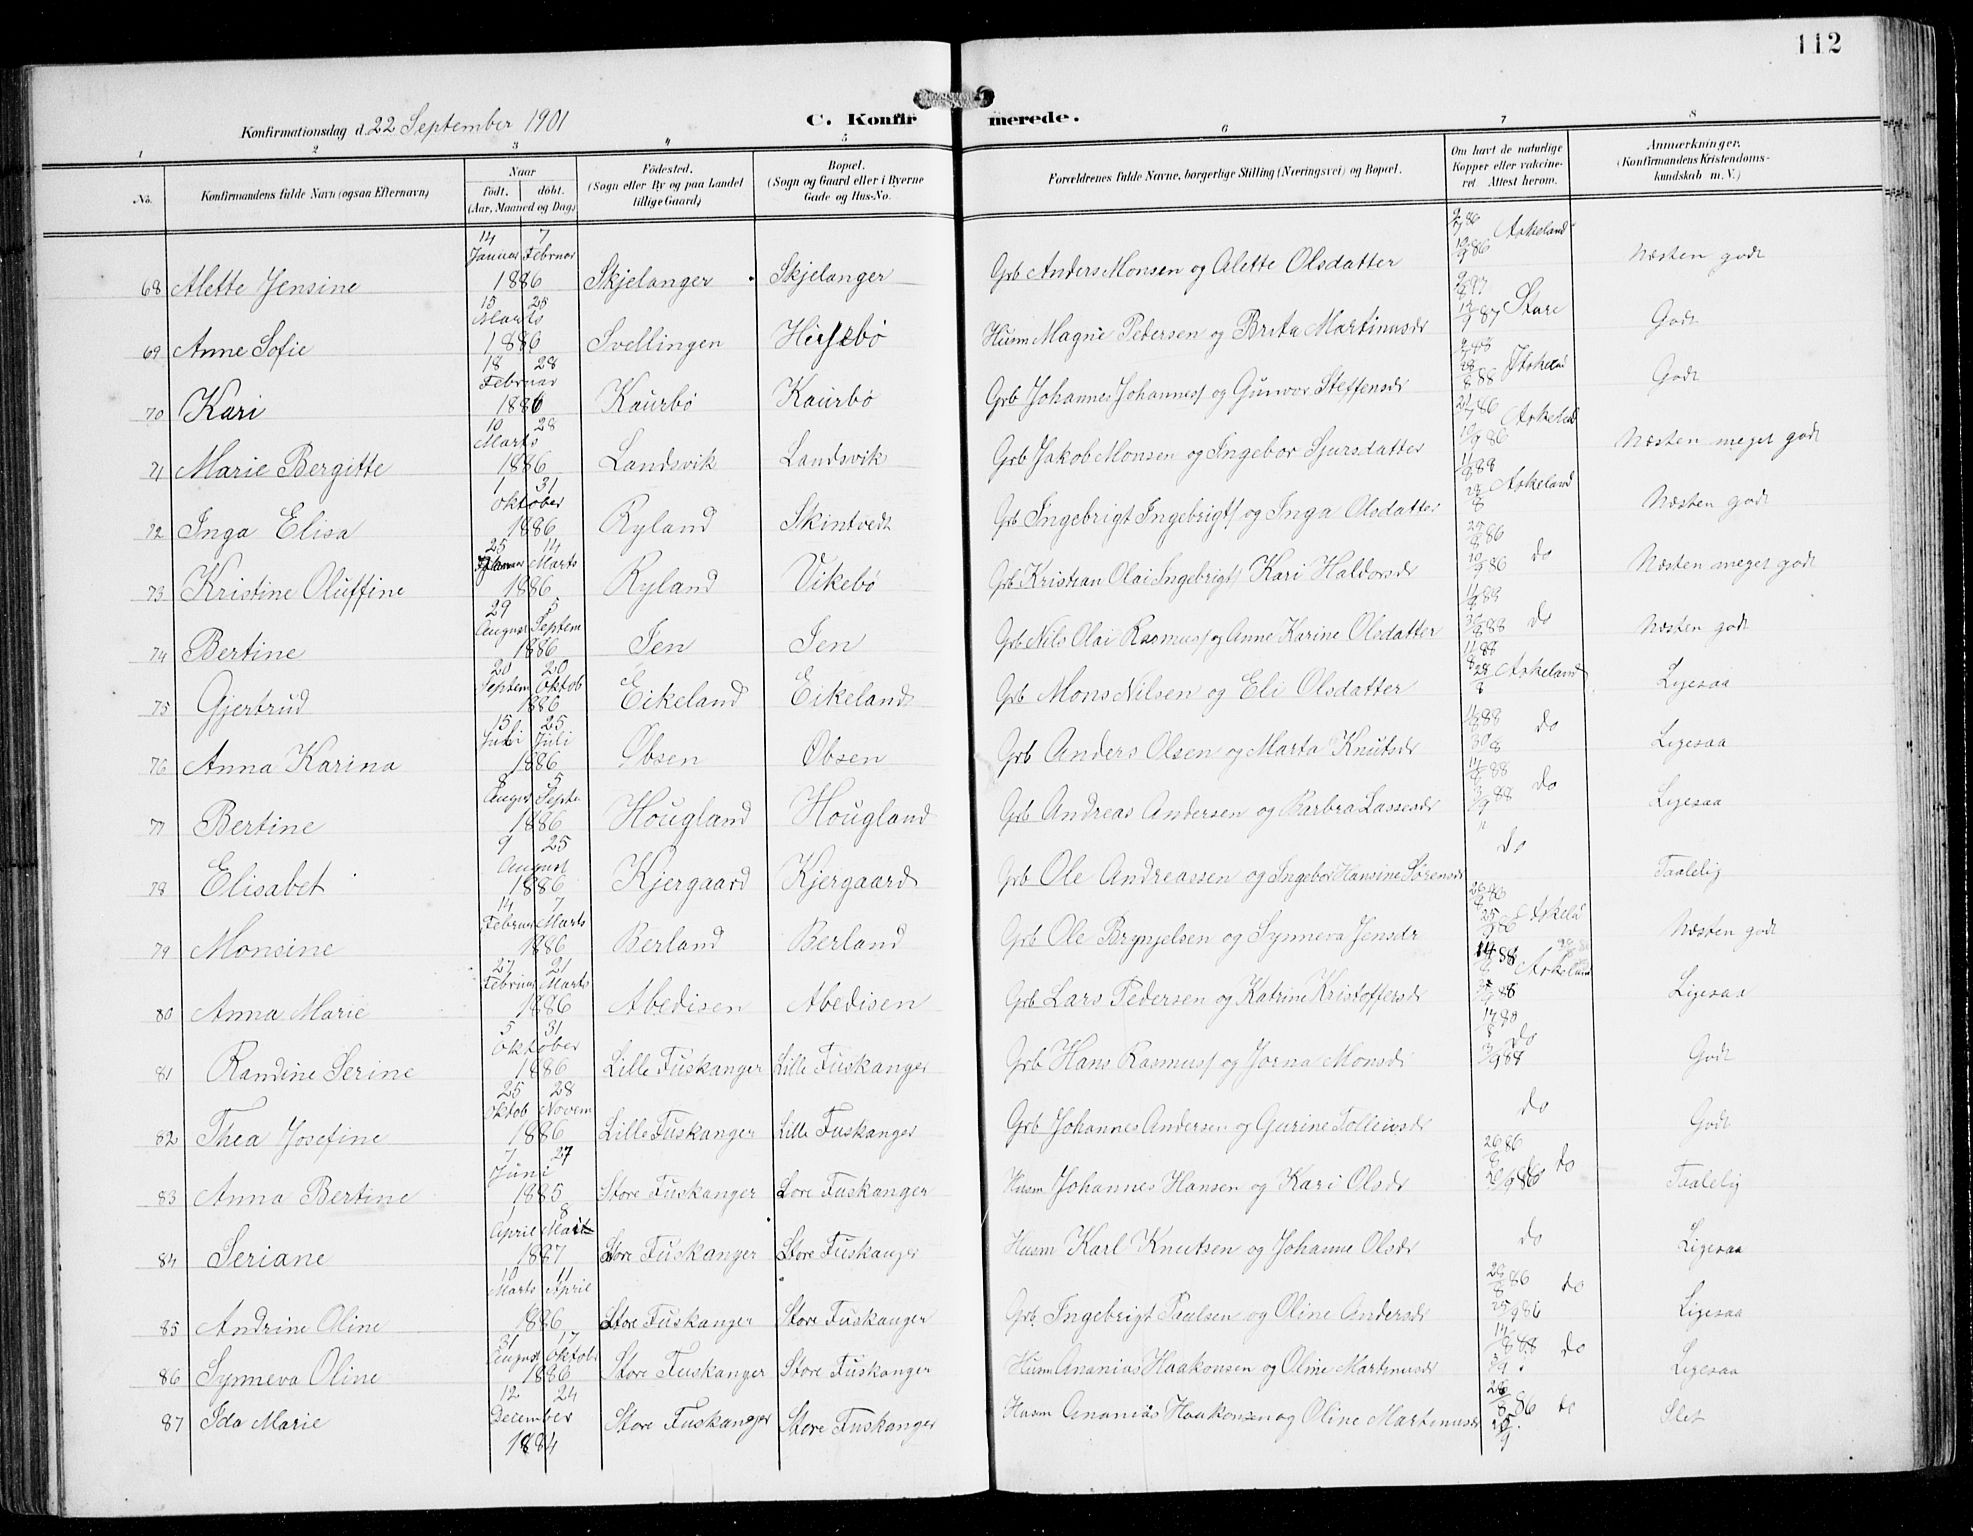 112
Konfirmationsdag d. 22 September 1901
C. Konfirmerede.
1 2 3 4 5 6 7 8
No. Konfirmandens fulde Navn (ogsaa Efternavn) Naar født. døbt. (Aar, Maaned og Dag) Fødested. (Sogn eller By og paa Landet tillige Gaard) Bopæl. (Sogn og Gaard eller i Byerne Gade og Hus-No. Forældrenes fulde Navne, borgerlige Stilling (Næringsvei) og Bopæl. Om havt de naturlige Kopper eller vakcineret. Attest herom. Anmærkninger. (Konfirmandens Kristendomskundskab m. V.)
68 Alette Jensine 14 Januar 7 Februar 1886 Skjelanger Skjelanger Grb Anders Monsen og Alette Olsdatter Askeland Næsten godt
69 Anne Sofie 15 25 Marts 1886 Svellingen Husm Magne Pedersen og Brita Martinusdr Stare Godt
70 Kari 18 28 Februar 1886 Kaurbø Kaurbø Grb Johannes Johannesf og Gunvor Steffensdr Godt
71 Marie Bergitte 10 28 Marts 1886 Landsvik Landsvik Grb Jakob Monsen og Ingebor Sjursdatter Næsten meget godt
72 Inga Elisa 1 31 Oktober 1886 Ryland Skintvedt Grb Ingebrigt Ingebrigtf og Inga Olsdatter Askeland Næsten godt
73 Kristine Oluffine 25 14 Marts 1886 Ryland Vikebø Grb Kristian Olai Ingebrigtf Kari Haldorsdr do Næsten meget godt
74 Bertine 29 August 5 Septem 1886 Jen Jen Grb Nils Olai Rasmusf og Anne Karine Olsdatter do Næsten godt
75 Gjertrud 20 Septem 20 Oktob 1886 Eikeland Eikeland Grb Mons Nilsen og Eli Olsdatter Askeland Ligesaa
76 Anna Karina 15 Juli 25 Juli 1886 Øbsen Øbsen Grb Anders Olsen og Marta Knutsdr do Ligesaa
77 Bertine 8 August 5 Septe 1886 Hougland Hougland Grb Andreas Andersen og Barbra Lassesdr do Ligesaa
78 Elisabet 9 25 August 1886 Kjergaard Kjergaard Grb Ole Andreassen og Ingebor Hansine Sørensdr do Taalelig
79 Monsine 14 Februar 7 Marts 1886 Berland Berland Grb Ole Brynjelsen og Synneva Jensdr Næsten godt
80 Anna Marie 27 Februar 21 Marts 1886 Abedisen Abedisen Grb Lars Pedersen og Katrine Kristoffersdr Askeland Ligesaa
81 Randine Serine 5 31 Oktober 1886 Lille Fuskanger Lille Fuskanger Grb Hans Rasmusf og Jorna Monsdr do Godt
82 Thea Josefine 25 Oktob 28 Novem 1886 Lille Fuskanger Lille Fuskanger Grb Johannes Andersen og Gurine Tolleivsdr do Godt
83 Anna Bertine 7 27 Juni 1885 Store Fuskanger Store Fuskanger Husm Johannes Hansen og Kari Olsdr do Taalelig
84 Seriane 1 April 8 1887 Store Fuskanger Store Fuskanger Husm Karl Knutsen og Johanne Olsdr do Ligesaa
85 Andrine Oline 10 Marts 11 April 1886 Store Fuskanger Store Fuskanger Grb. Ingebrigt Paulsen og Oline Andersdr do Ligesaa
86 Synneva Oline 31 August 17 Oktob 1886 Store Fuskanger Store Fuskanger Husm Ananias Haakonsen og Oline Martinusdr do Ligesaa
87 Ida Marie 12 24 December 1884 Store Fuskanger Store Fuskanger Husm Ananias Haakonsen og Oline Martinusdr do Slet